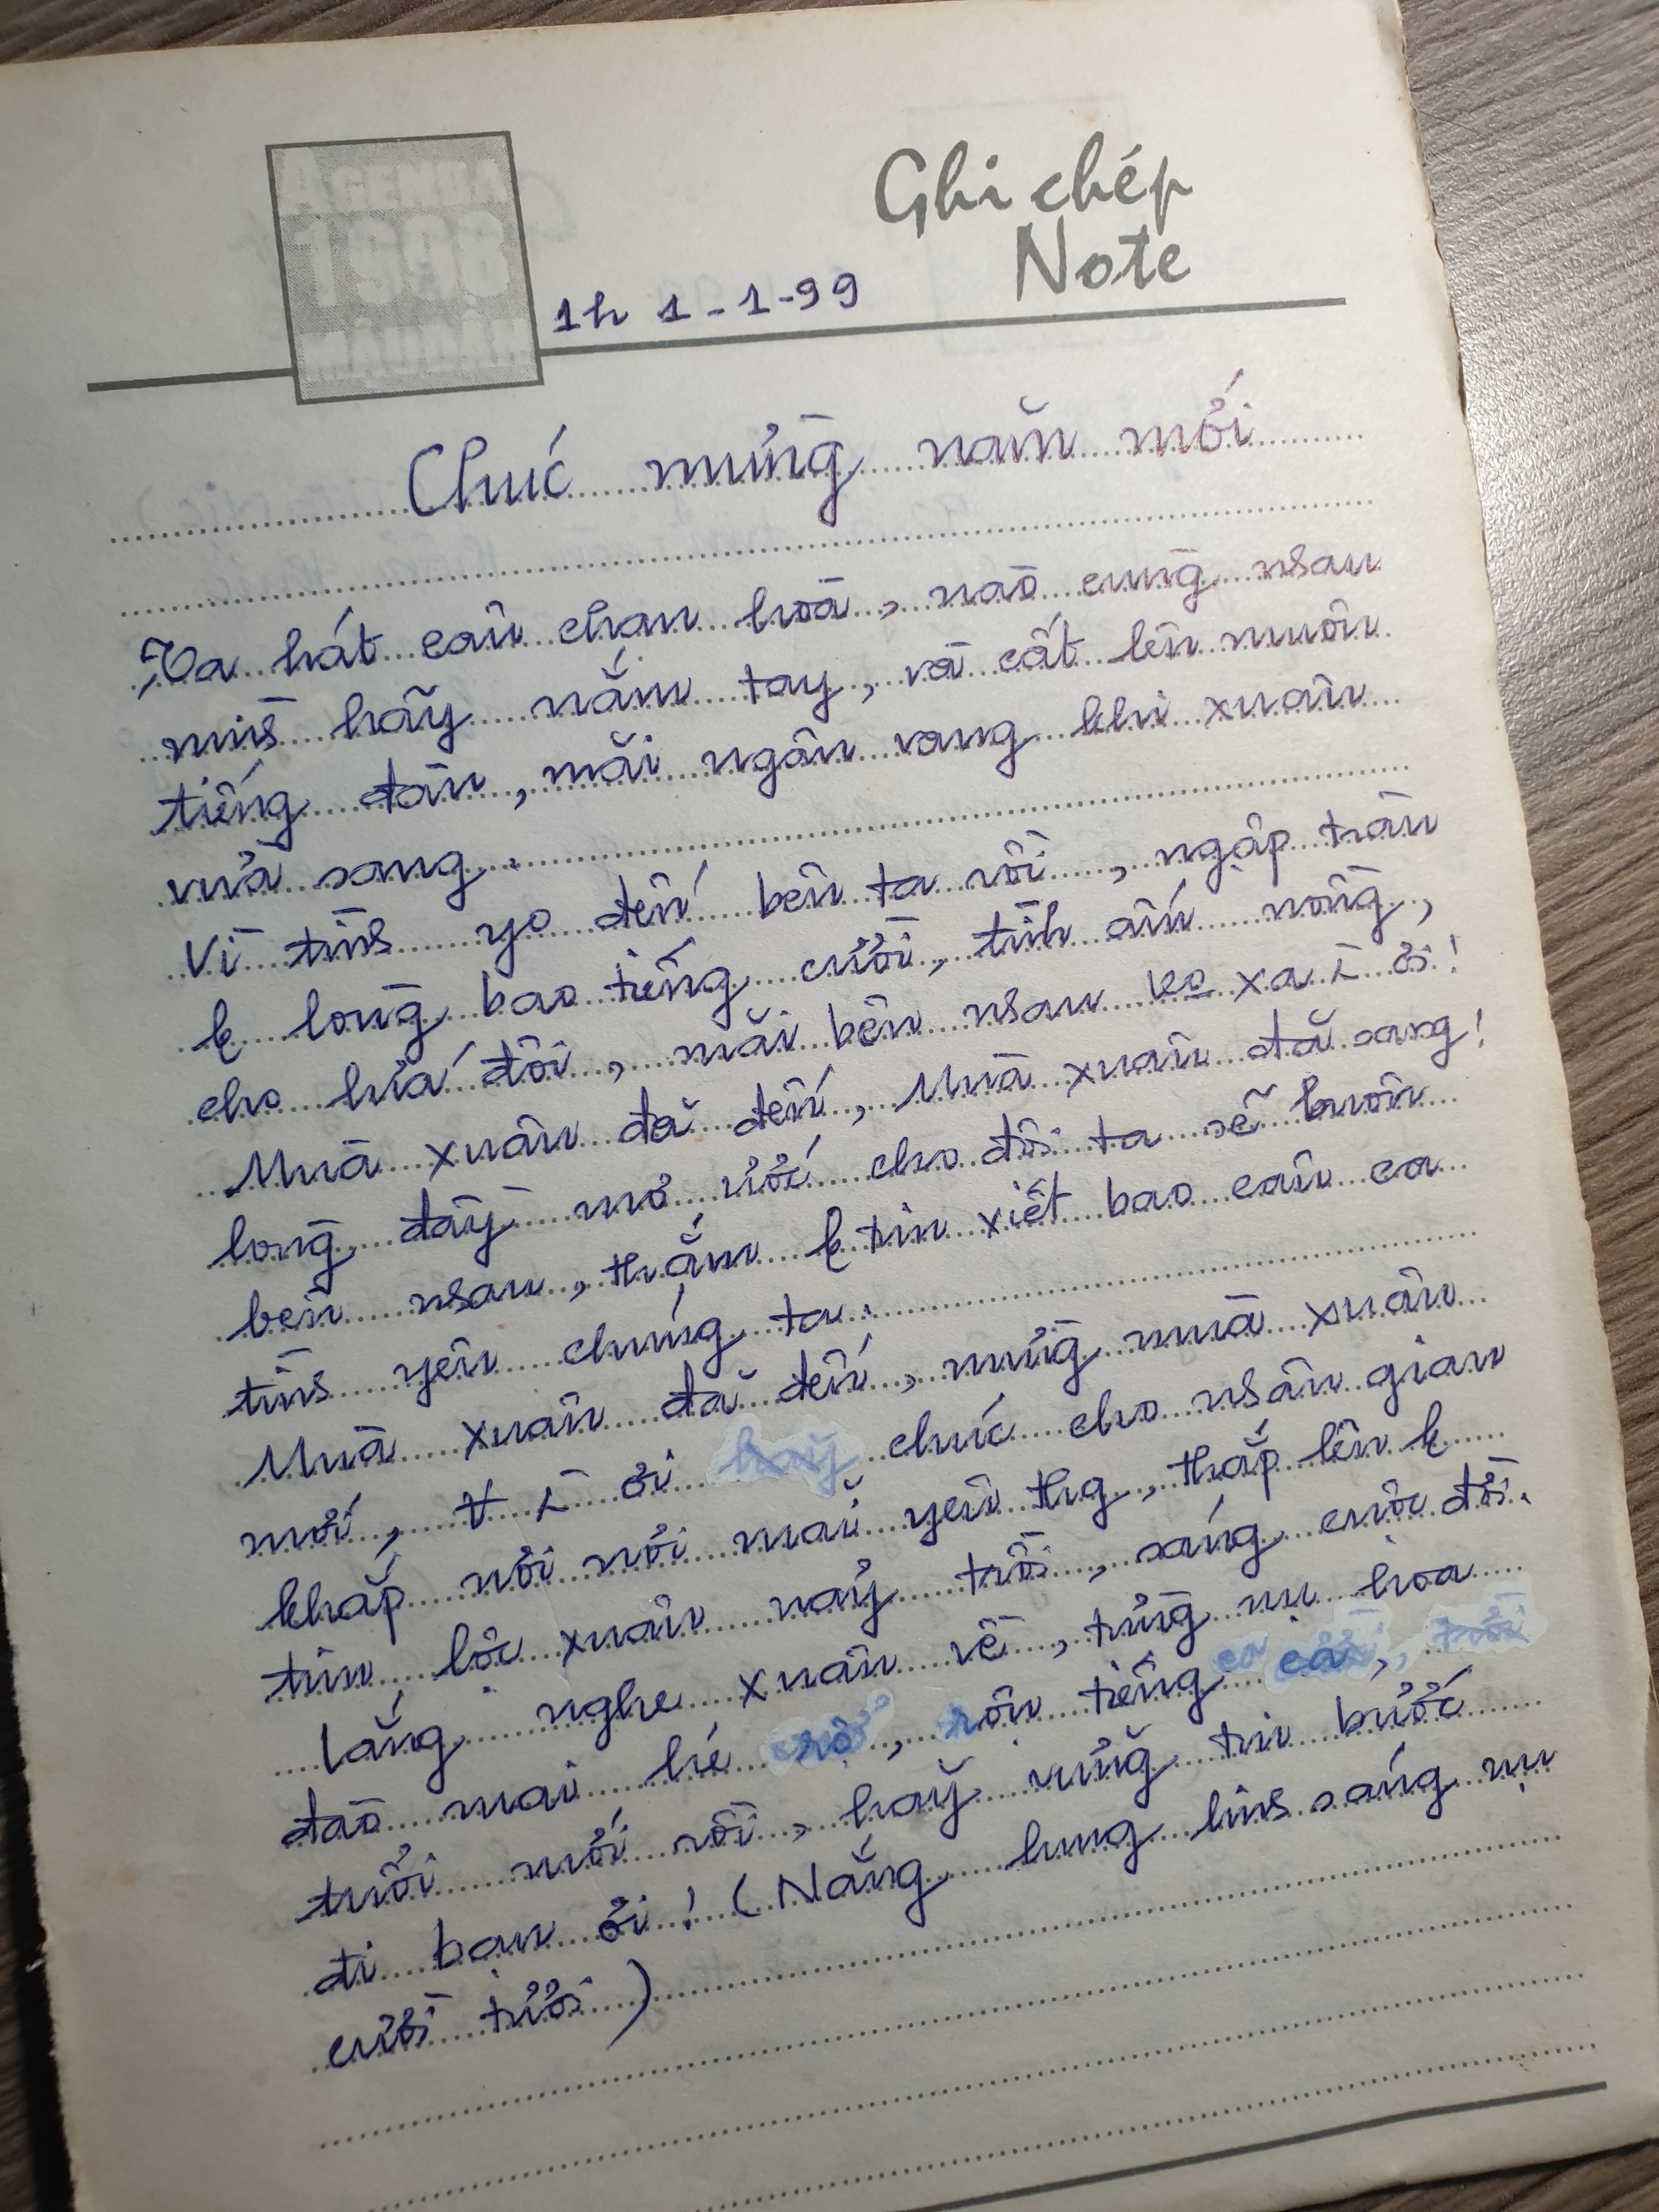 AGENDA
1998
MẬU DẦN
Ghi chép
Note
1h 1-1-99
Chúc mừng năm mới
Ca hát câu chan hoà, nào cùng nhau
mình hãy nắm tay, và cất lên muôn
tiếng đàn, mãi ngân vang khi xuân
vừa sang.
Vì tình yo đến bên ta rồi, ngập tràn
lòng bao tiếng cười, tình ấm nồng,
cho lứa đôi, mãi bên nhau ko xa ơi!
Mùa xuân đã đến, Mùa xuân đã sang!
lòng đầy mơ ước cho đôi ta sẽ luôn
bên nhau, thắm tin xiết bao câu ca
tình yêu chúng ta.
Mùa xuân đã đến, mừng mùa xuân
mới, ơi chúc cho nhân gian
khắp nơi nơi mãi yêu thg, thắp lên
tin lộc xuân nảy trồi, sáng cuộc đời.
Lắng nghe xuân về, từng nụ hoa
đào mai hé nở, rộn tiếng ca,
tuổi mới rồi, hãy vững tin bước
đi bạn ơi! (Nắng lung linh sáng nụ
cười tươi)